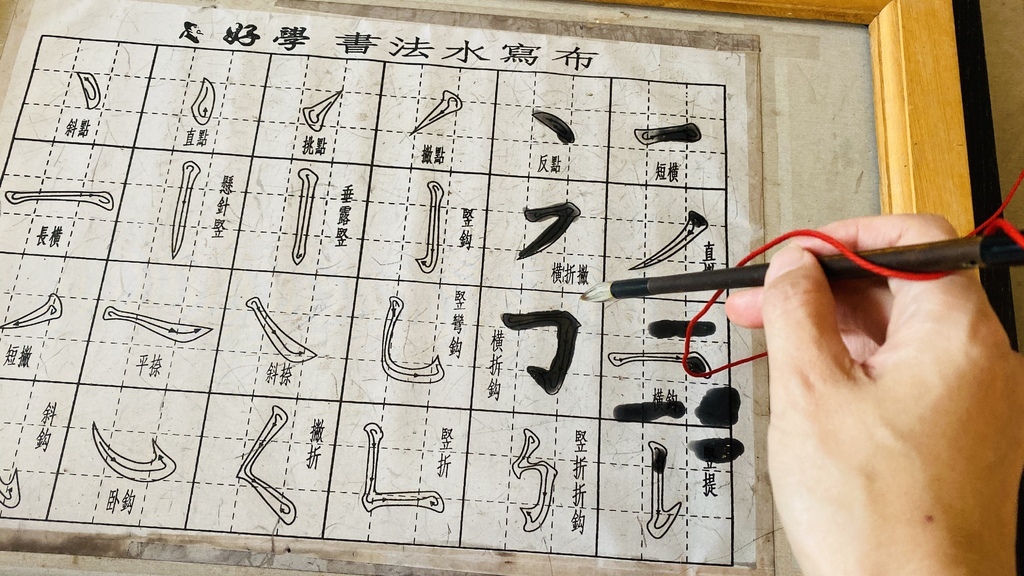 好學 書法水寫布
斜點
直點
挑點
撇點
反點
短橫
長橫
懸針竪
垂露竪
竪鈎
橫折撇
直
短撇
平捺
斜捺
竪彎鈎
橫折鈎
橫鈎
斜鈎
卧鈎
撇折
竪折
竪折折鈎
提